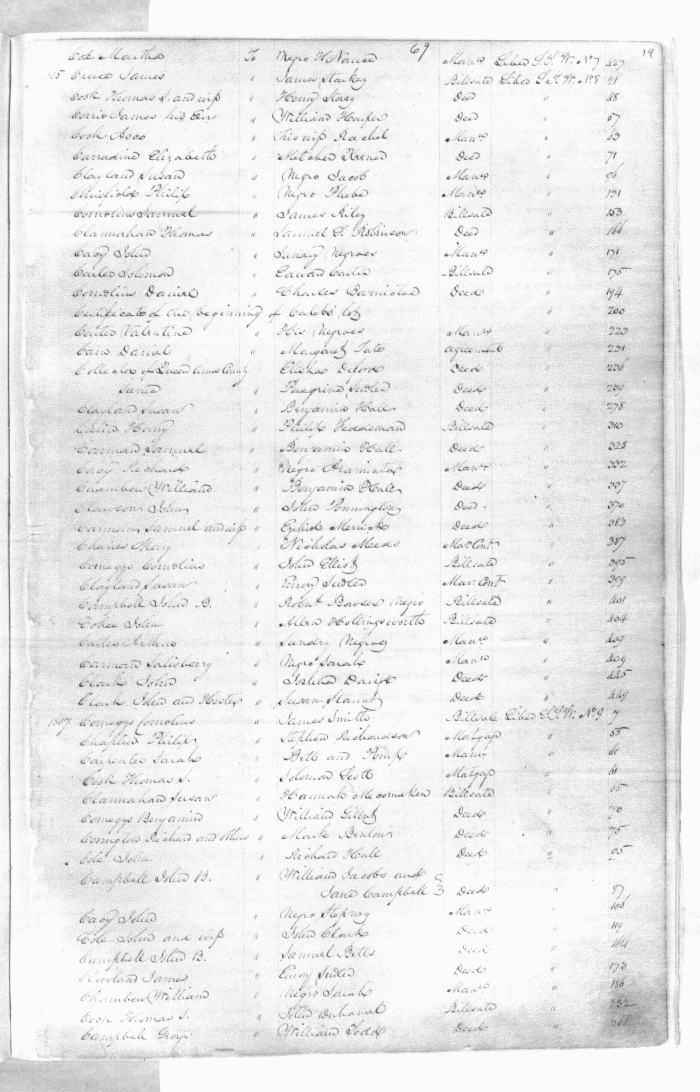 69 19
Cole Martha To Negro H Nance Manu Liber STW No 7 427
Cruce James " James Starkey Billsale Liber STW No 8 21
Cook Thomas S. and wife " Henry Storey Deed " 48
William Harper Deed " 57
Cook Asco " his wife Rachel Manu " 63
Carradine Elizabeth " Deed " 71
Clayland Susan " Negro Jacob Manu " 96
Chrisfield Philip " Negro Phebe Manu " 131
Cornelius Samuel " James Riley Billsale " 153
Clannahan Thomas " Samuel Y. Robinson Deed " 166
Cacy John " Sundry Negroes Manu " 171
Carter Solomon " Edward Carter Billsale " 175
Cornelius Daniel " Charles Deed " 194
Certificate of the beginning of Calebs lot " 200
Carter Valentine " His Negroes Manu " 223
Cane Daniel " Margaret Tate agreement " 231
Collector of Queen Anns County " Elisha Deford Deed " 236
Same " Peregrine Sudler Deed " 239
Clayland Susan " Benjamin Hall Deed " 278
Henry " Philip Heddeman Billsale " 310
Carman Samuel " Benjamin Hall Deed " 328
Cacy Richard " Negro Araminta Manu " 332
Chambers William " Benjamin Hall Deed " 337
Clawson John " John Pennington Deed " 370
Carman Samuel and wife " Merrick Deed " 383
Charles Mary " Nicholas Meeds Mar. Cont " 387
Comegys Cornelius " John Elliot Billsale " 395
Clayland Susan " Emory Sudler Mar. Cont " 399
Campbell John B. " Robert Bordley Negro Billsale " 401
John " Allan Hollingsworth Billsale " 404
Carter Arthur " Sundry Negroes Manu " 409
Carman Salisberry " Negro Sarah Manu " 409
Clark John " David Deed " 445
Clark John and Hester " Susan Stanut Deed " 449
1807 Comegys Cornelius " James Smith Billsale Liber STW No 9 7
Chaplin Philip " Stephen Richardson Mortgage " 55
Carpenter Sarah " Bets and Manu " 61
Cook Thomas S. " Solomon Scott Mortgage " 61
Clannahan Susan " Hannah Mccomeken Billsale " 65
Comegys Benjamin " William Gilbert Deed " 70
Covington Richard and others " Mark Benton Deed " 75
Cole John " Richard Hall Deed " 95
Campbell John B. " William Jacobs and
Jane Campbell Deed " 97
Cacy John " Negro Stepney Manu " 106
Cole John and wife " John Clark Deed " 119
Campbell John B. " Samuel Betts Deed " 164
Clayland James " Emory Sudler Deed " 173
Chambers William " Negro Sarah Manu " 186
Cook Thomas S. " John Duhamel Billsale " 232
Campbell " William Todd Deed "